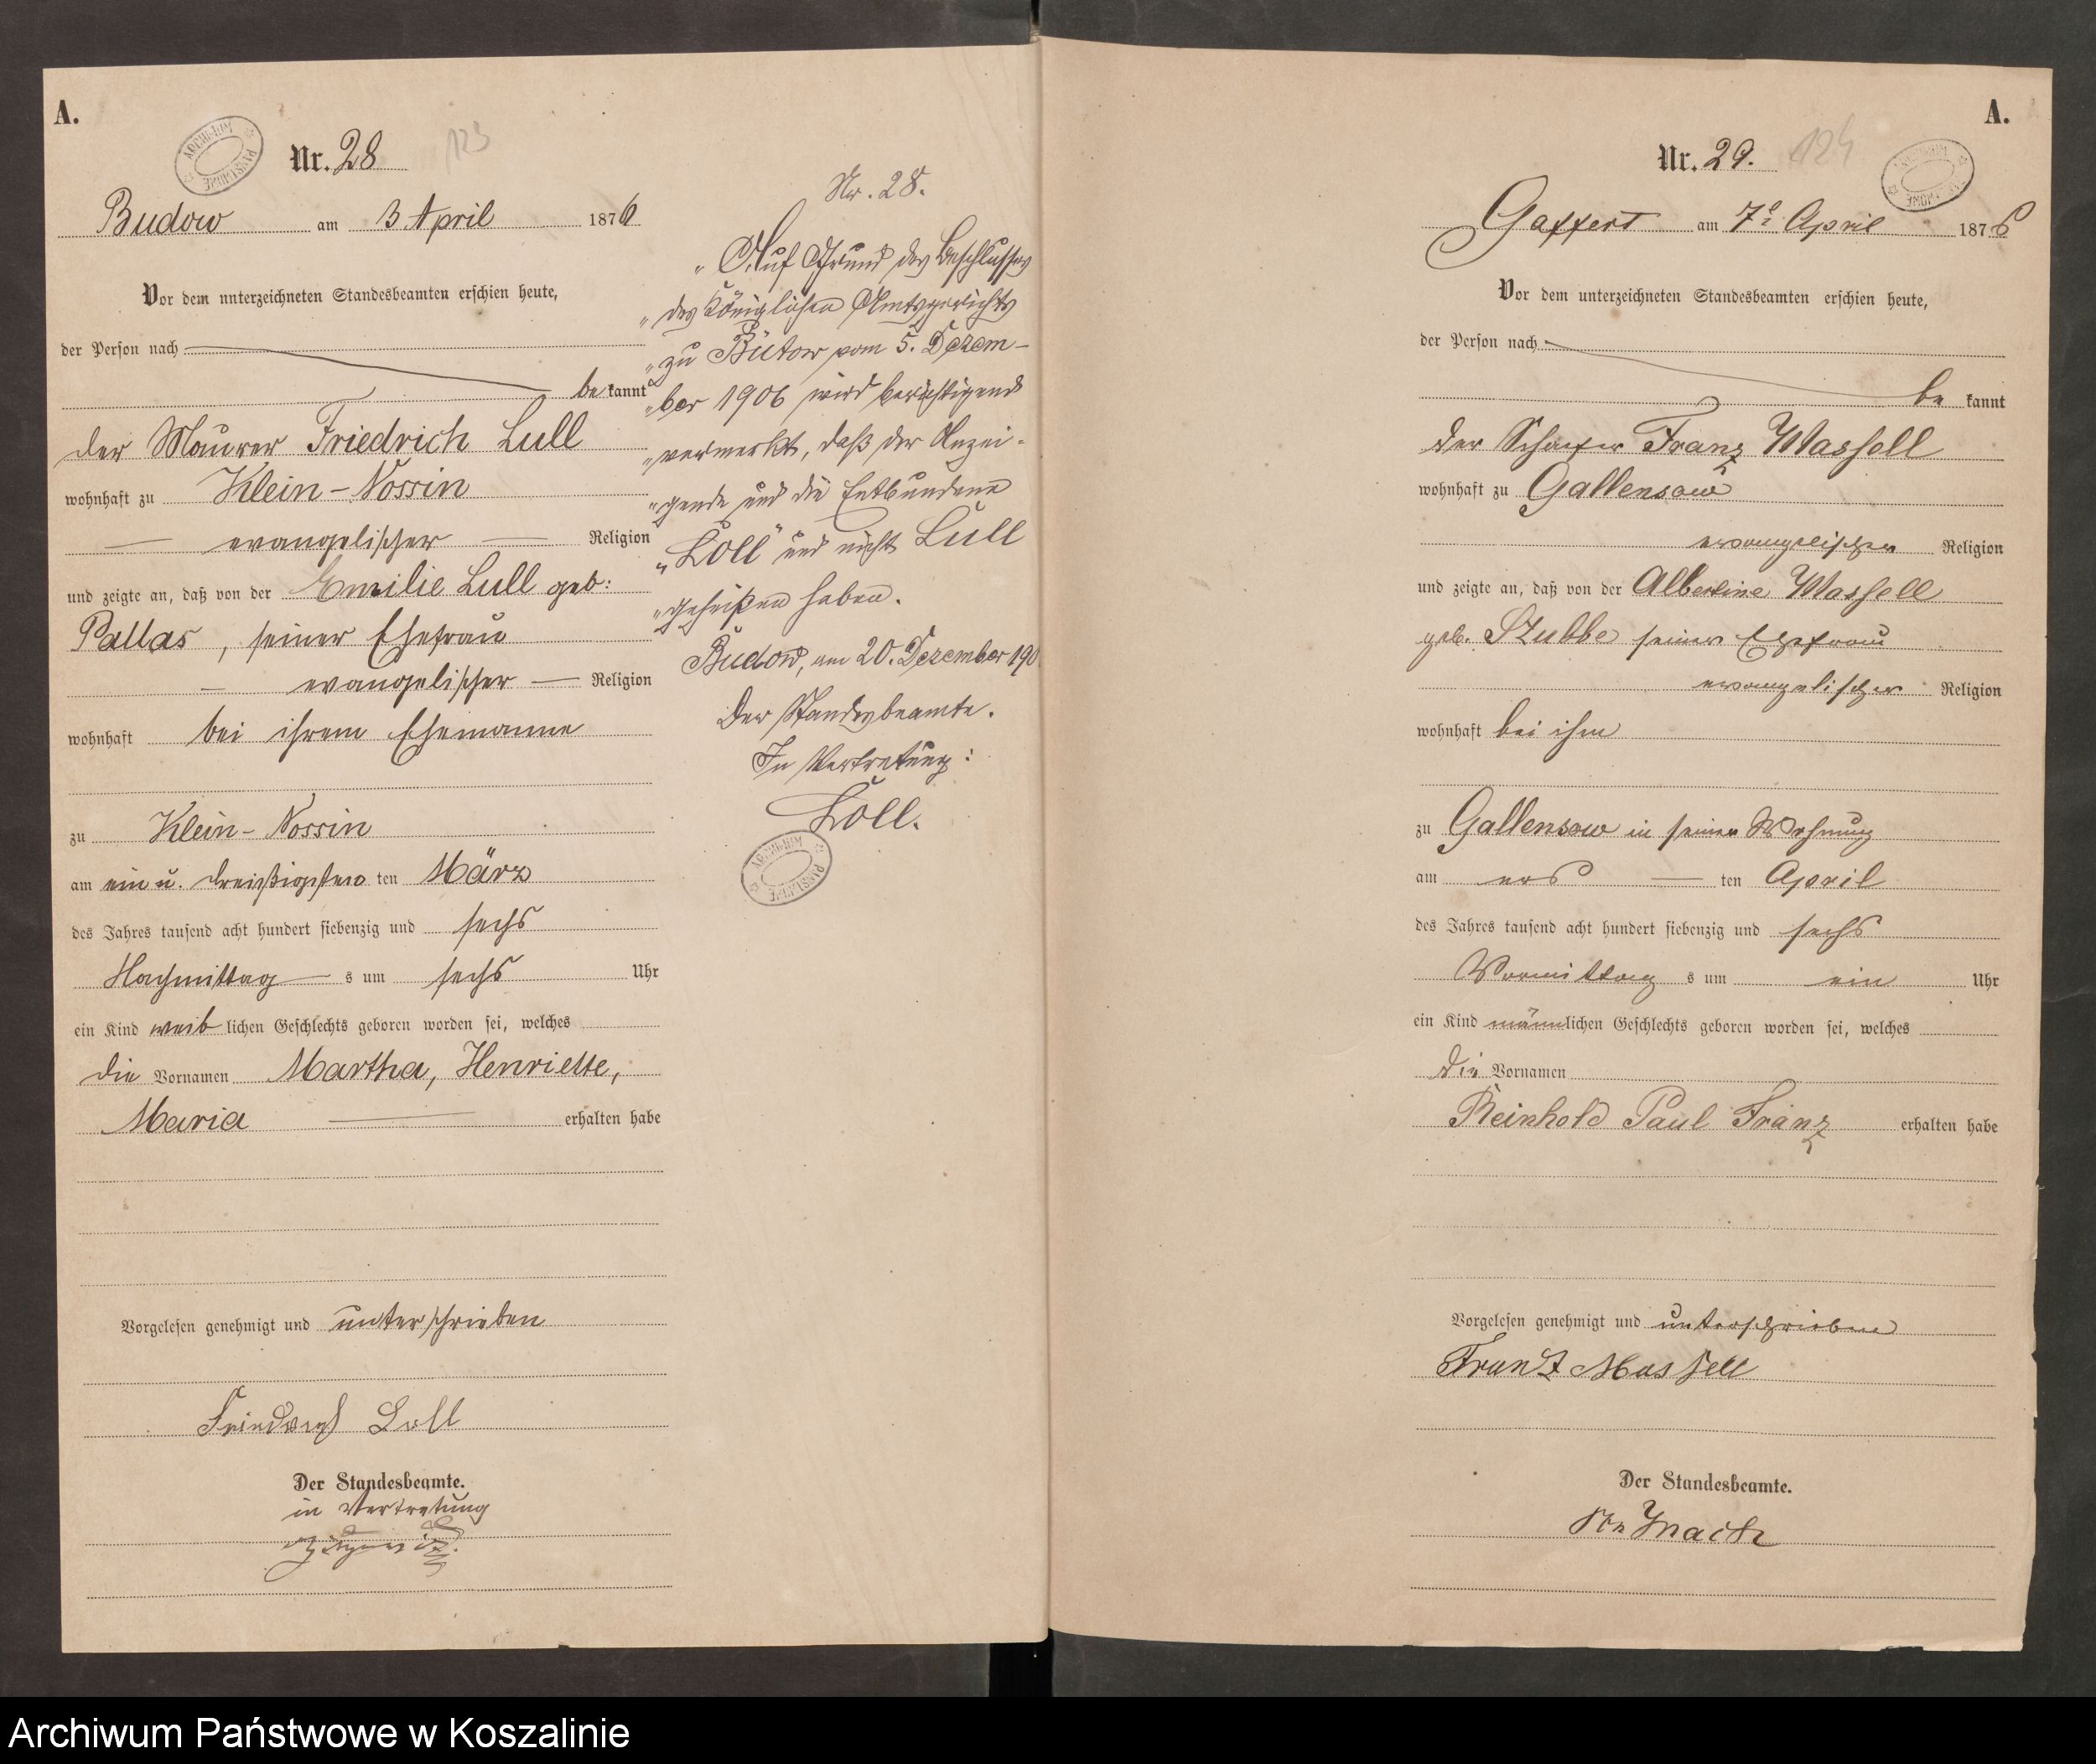 A.
Nr. 28
123
Budow am 3 April 1876
Vor dem unterzeichneten Standesbeamten erschien heute,
der Person nach
be kannt
der Maurer Friedrich Lull
wohnhaft zu Klein-Nossin
evangelischer Religion
und zeigte an, daß von der Emilie Lull geb:
Pallas, seiner Ehefrau
evangelischer Religion
wohnhaft bei ihrem Ehemanne
zu Klein-Nossin
am ein u. dreißigsten ten März
des Jahres tausend acht hundert siebenzig und sechs
Nachmittag s um sechs Uhr
ein Kind weib lichen Geschlechts geboren worden sei, welches
die Vornamen Martha, Henriette,
Maria erhalten habe
Vorgelesen genehmigt und unterschrieben
Friedrich Loll
Der Standesbeamte.
in Vertretung
Nr. 28.
„Auf Grund des Beschlusses
„des Königlichen Amtsgerichts
„zu Bütow vom 5. Dezem-
„ber 1906 wird berichtigend
„vermerkt, daß der Anzei-
„gende und die Entbundene
„Loll" und nicht Lull
„geheißen haben.
Budow, am 20. Dezember 190
Der Standesbeamte.
In Vertretung:
Loll.
ARCHIWUM PAŃSTWOWE
A.
Nr. 29.
124
Gaffert am 7ᵉ April 1876
Vor dem unterzeichneten Standesbeamten erschien heute,
der Person nach
be kannt
der Schaefer Franz Massell
wohnhaft zu Gallensow
evangelischer Religion
und zeigte an, daß von der Albertine Massell
geb. Stubbe seiner Ehefrau
evangelischer Religion
wohnhaft bei ihm
zu Gallensow in seiner Wohnung
am ers ten April
des Jahres tausend acht hundert siebenzig und sechs
Vormittag s um ein Uhr
ein Kind männlichen Geschlechts geboren worden sei, welches
die Vornamen
Reinhold Paul Franz erhalten habe
Vorgelesen genehmigt und unterschrieben
Franz Massell
Der Standesbeamte.
Archiwum Państwowe w Koszalinie